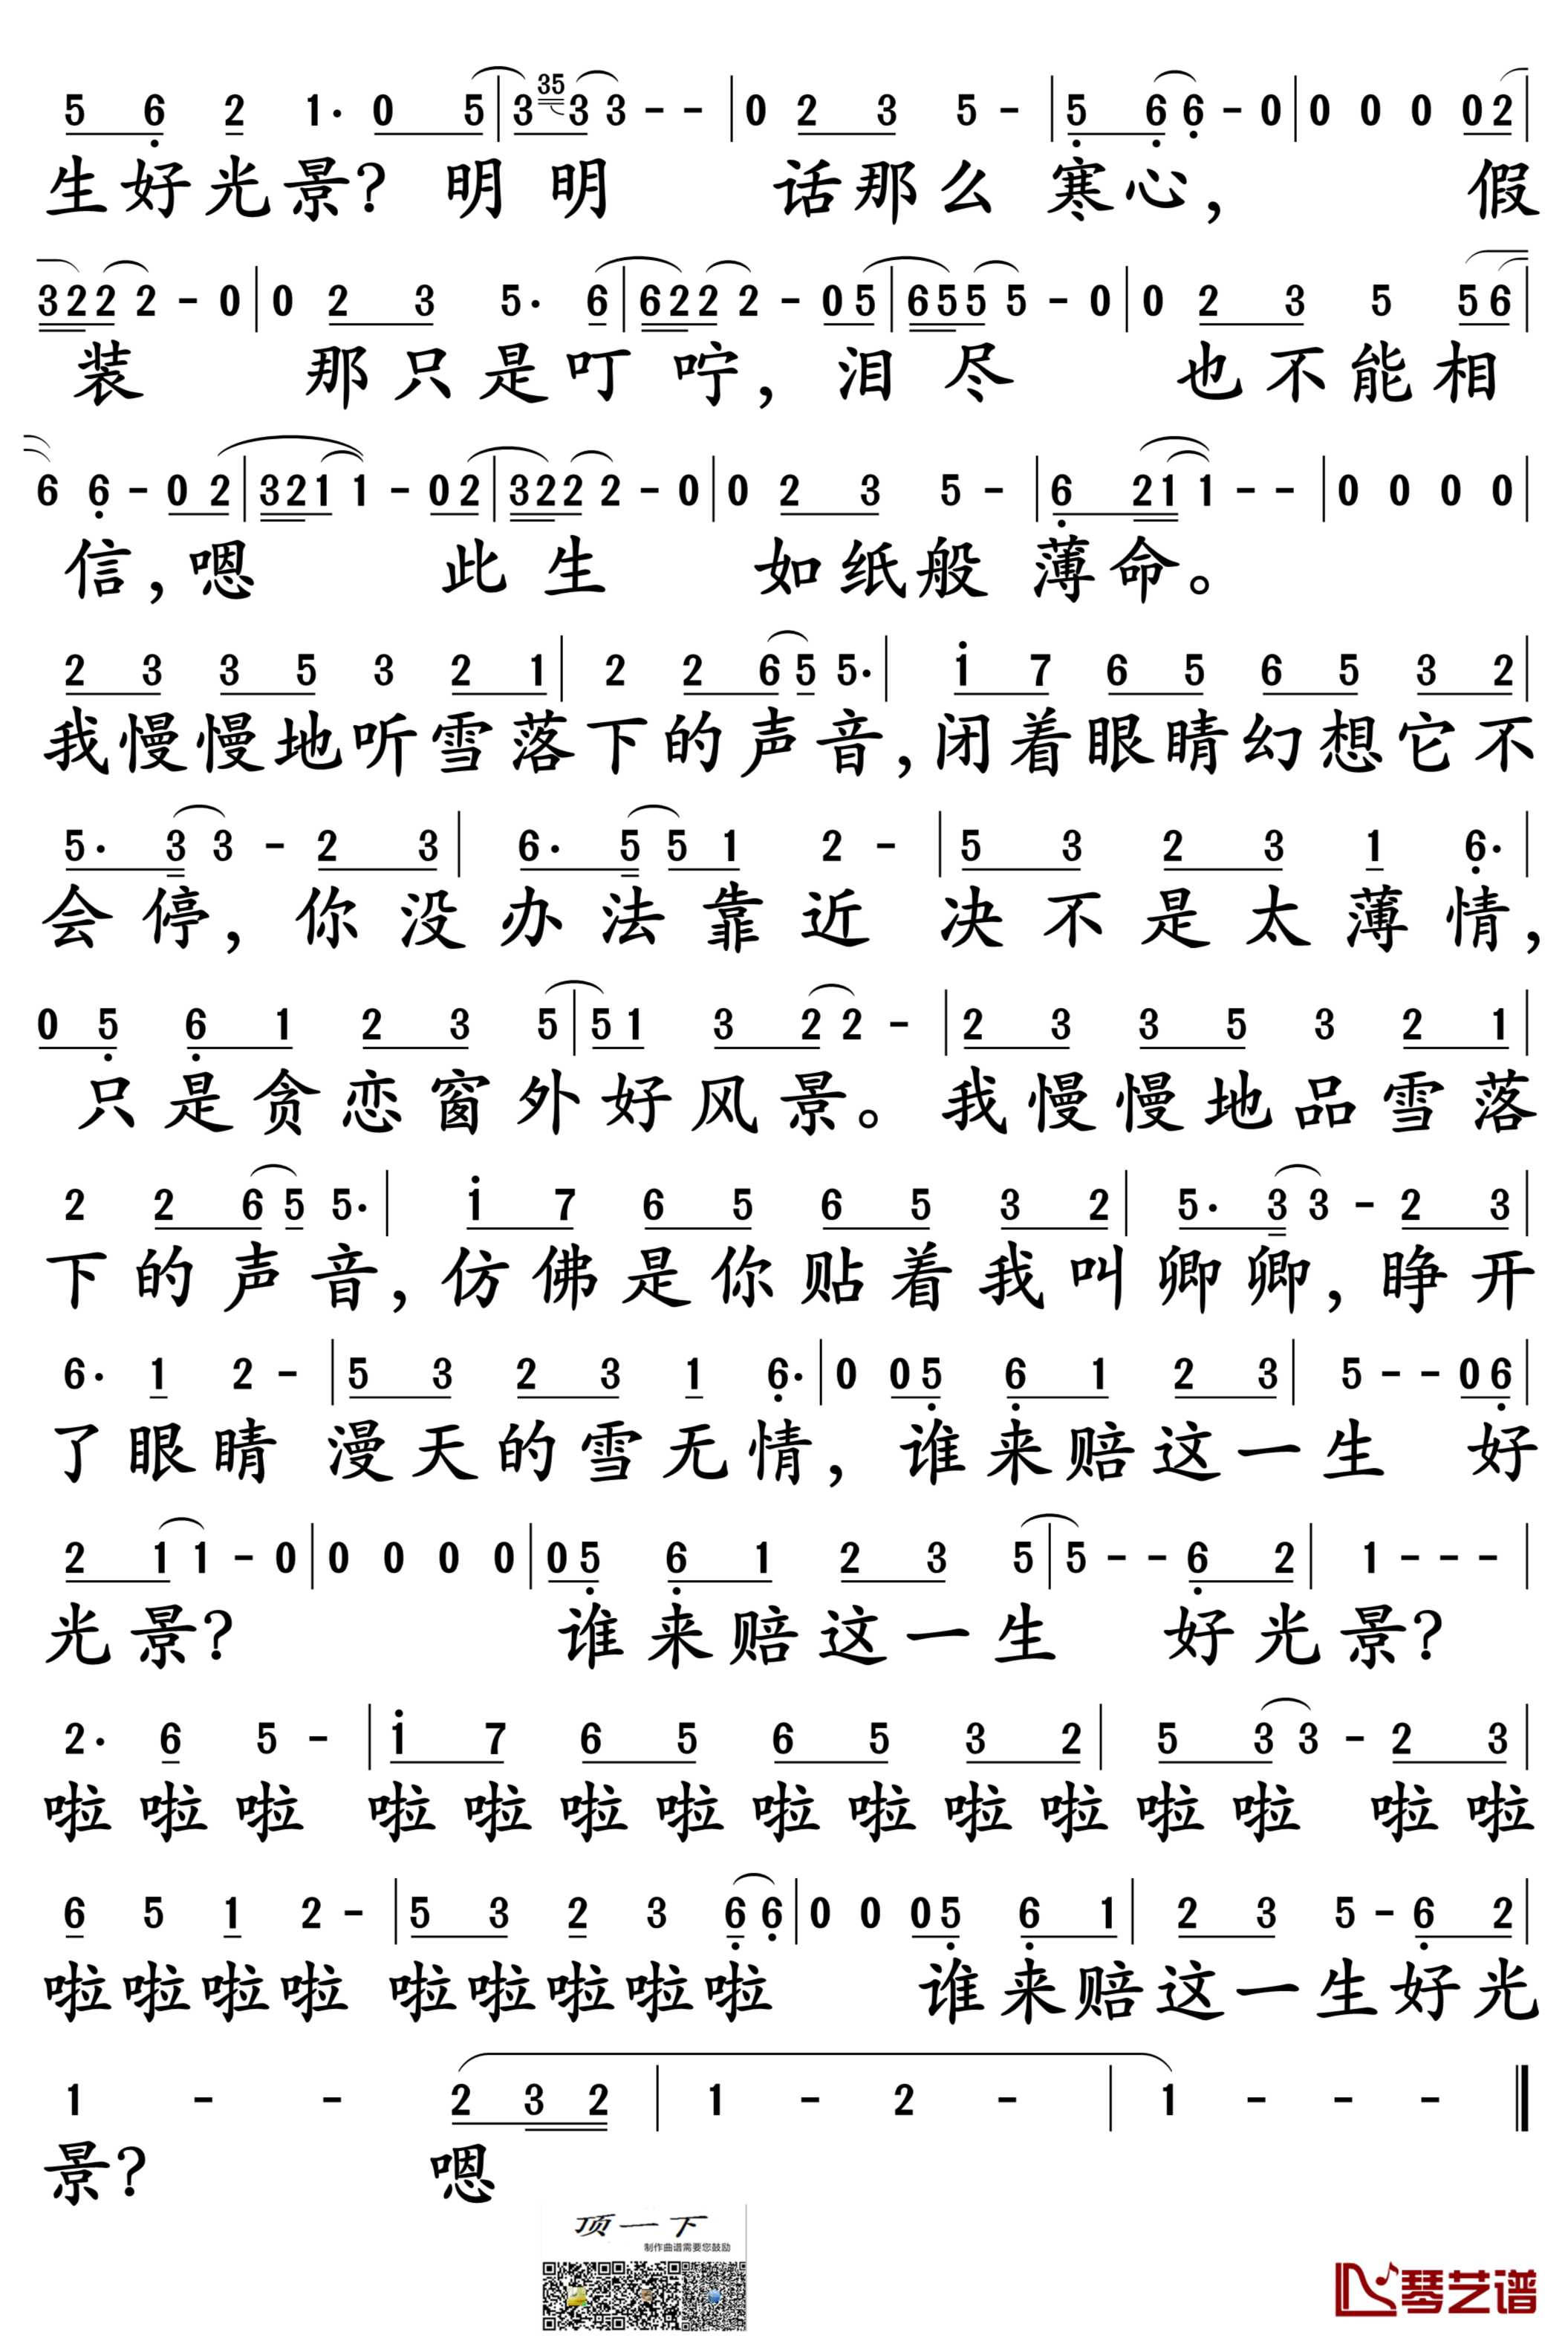 5 6 2 1· 0 5 | 3 35 3 3 - - | 0 2 3 5 - | 5 6 6 - 0 | 0 0 0 0 2 |
生好光景? 明明 话那么寒心, 假
3 2 2 2 - 0 | 0 2 3 5· 6 | 6 2 2 2 - 0 5 | 6 5 5 5 - 0 | 0 2 3 5 5 6 |
装 那只是叮咛,泪尽 也不能相
6 6 - 0 2 | 3 2 1 1 - 0 2 | 3 2 2 2 - 0 | 0 2 3 5 - | 6 2 1 1 - - | 0 0 0 0 |
信,嗯 此生 如纸般薄命。
2 3 3 5 3 2 1 | 2 2 6 5 5· | i 7 6 5 6 5 3 2 |
我慢慢地听雪落下的声音,闭着眼睛幻想它不
5· 3 3 - 2 3 | 6· 5 5 1 2 - | 5 3 2 3 1 6· |
会停,你没办法靠近 决不是太薄情,
0 5 6 1 2 3 5 | 5 1 3 2 2 - | 2 3 3 5 3 2 1 |
只是贪恋窗外好风景。我慢慢地品雪落
2 2 6 5 5· | i 7 6 5 6 5 3 2 | 5· 3 3 - 2 3 |
下的声音,仿佛是你贴着我叫卿卿,睁开
6· 1 2 - | 5 3 2 3 1 6· | 0 0 5 6 1 2 3 | 5 - - 0 6 |
了眼睛 漫天的雪无情,谁来赔这一生 好
2 1 1 - 0 | 0 0 0 0 | 0 5 6 1 2 3 5 | 5 - - 6 2 | 1 - - - |
光景? 谁来赔这一生 好光景?
2· 6 5 - | i 7 6 5 6 5 3 2 | 5 3 3 - 2 3 |
啦啦啦 啦啦啦啦啦啦啦啦啦啦 啦啦
6 5 1 2 - | 5 3 2 3 6 6 | 0 0 0 5 6 1 | 2 3 5 - 6 2 |
啦啦啦啦 啦啦啦啦啦 谁来赔这一生好光
1 - - 2 3 2 | 1 - 2 - | 1 - - - ‖
景? 嗯
顶一下
制作曲谱需要您鼓励
琴艺谱